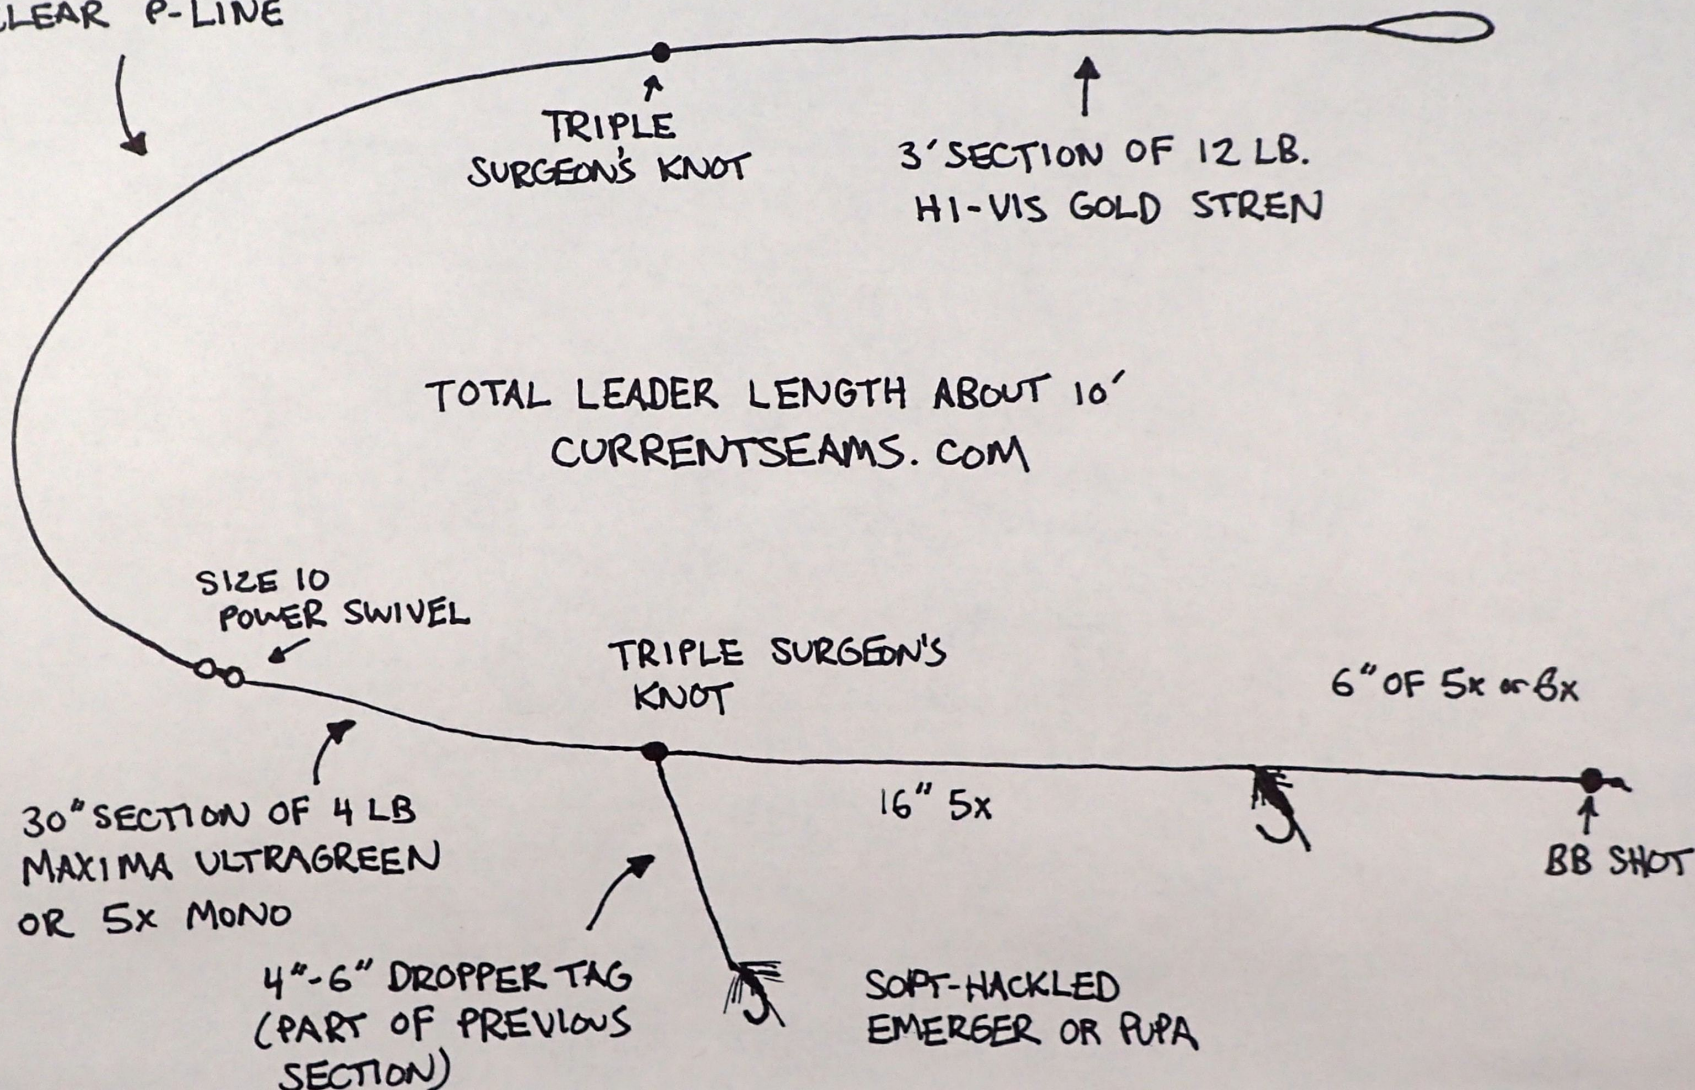 CLEAR P-LINE
TRIPLE
SURGEON'S KNOT
3' SECTION OF 12 LB.
HI-VIS GOLD STREN
TOTAL LEADER LENGTH ABOUT 10'
CURRENTSEAMS.COM
SIZE 10
POWER SWIVEL
TRIPLE SURGEON'S
KNOT
6" OF 5x or 6x
16" 5x
BB SHOT
30" SECTION OF 4 LB
MAXIMA ULTRAGREEN
OR 5x MONO
4"-6" DROPPER TAG
(PART OF PREVIOUS
SECTION)
SOFT-HACKLED
EMERGER OR PUPA